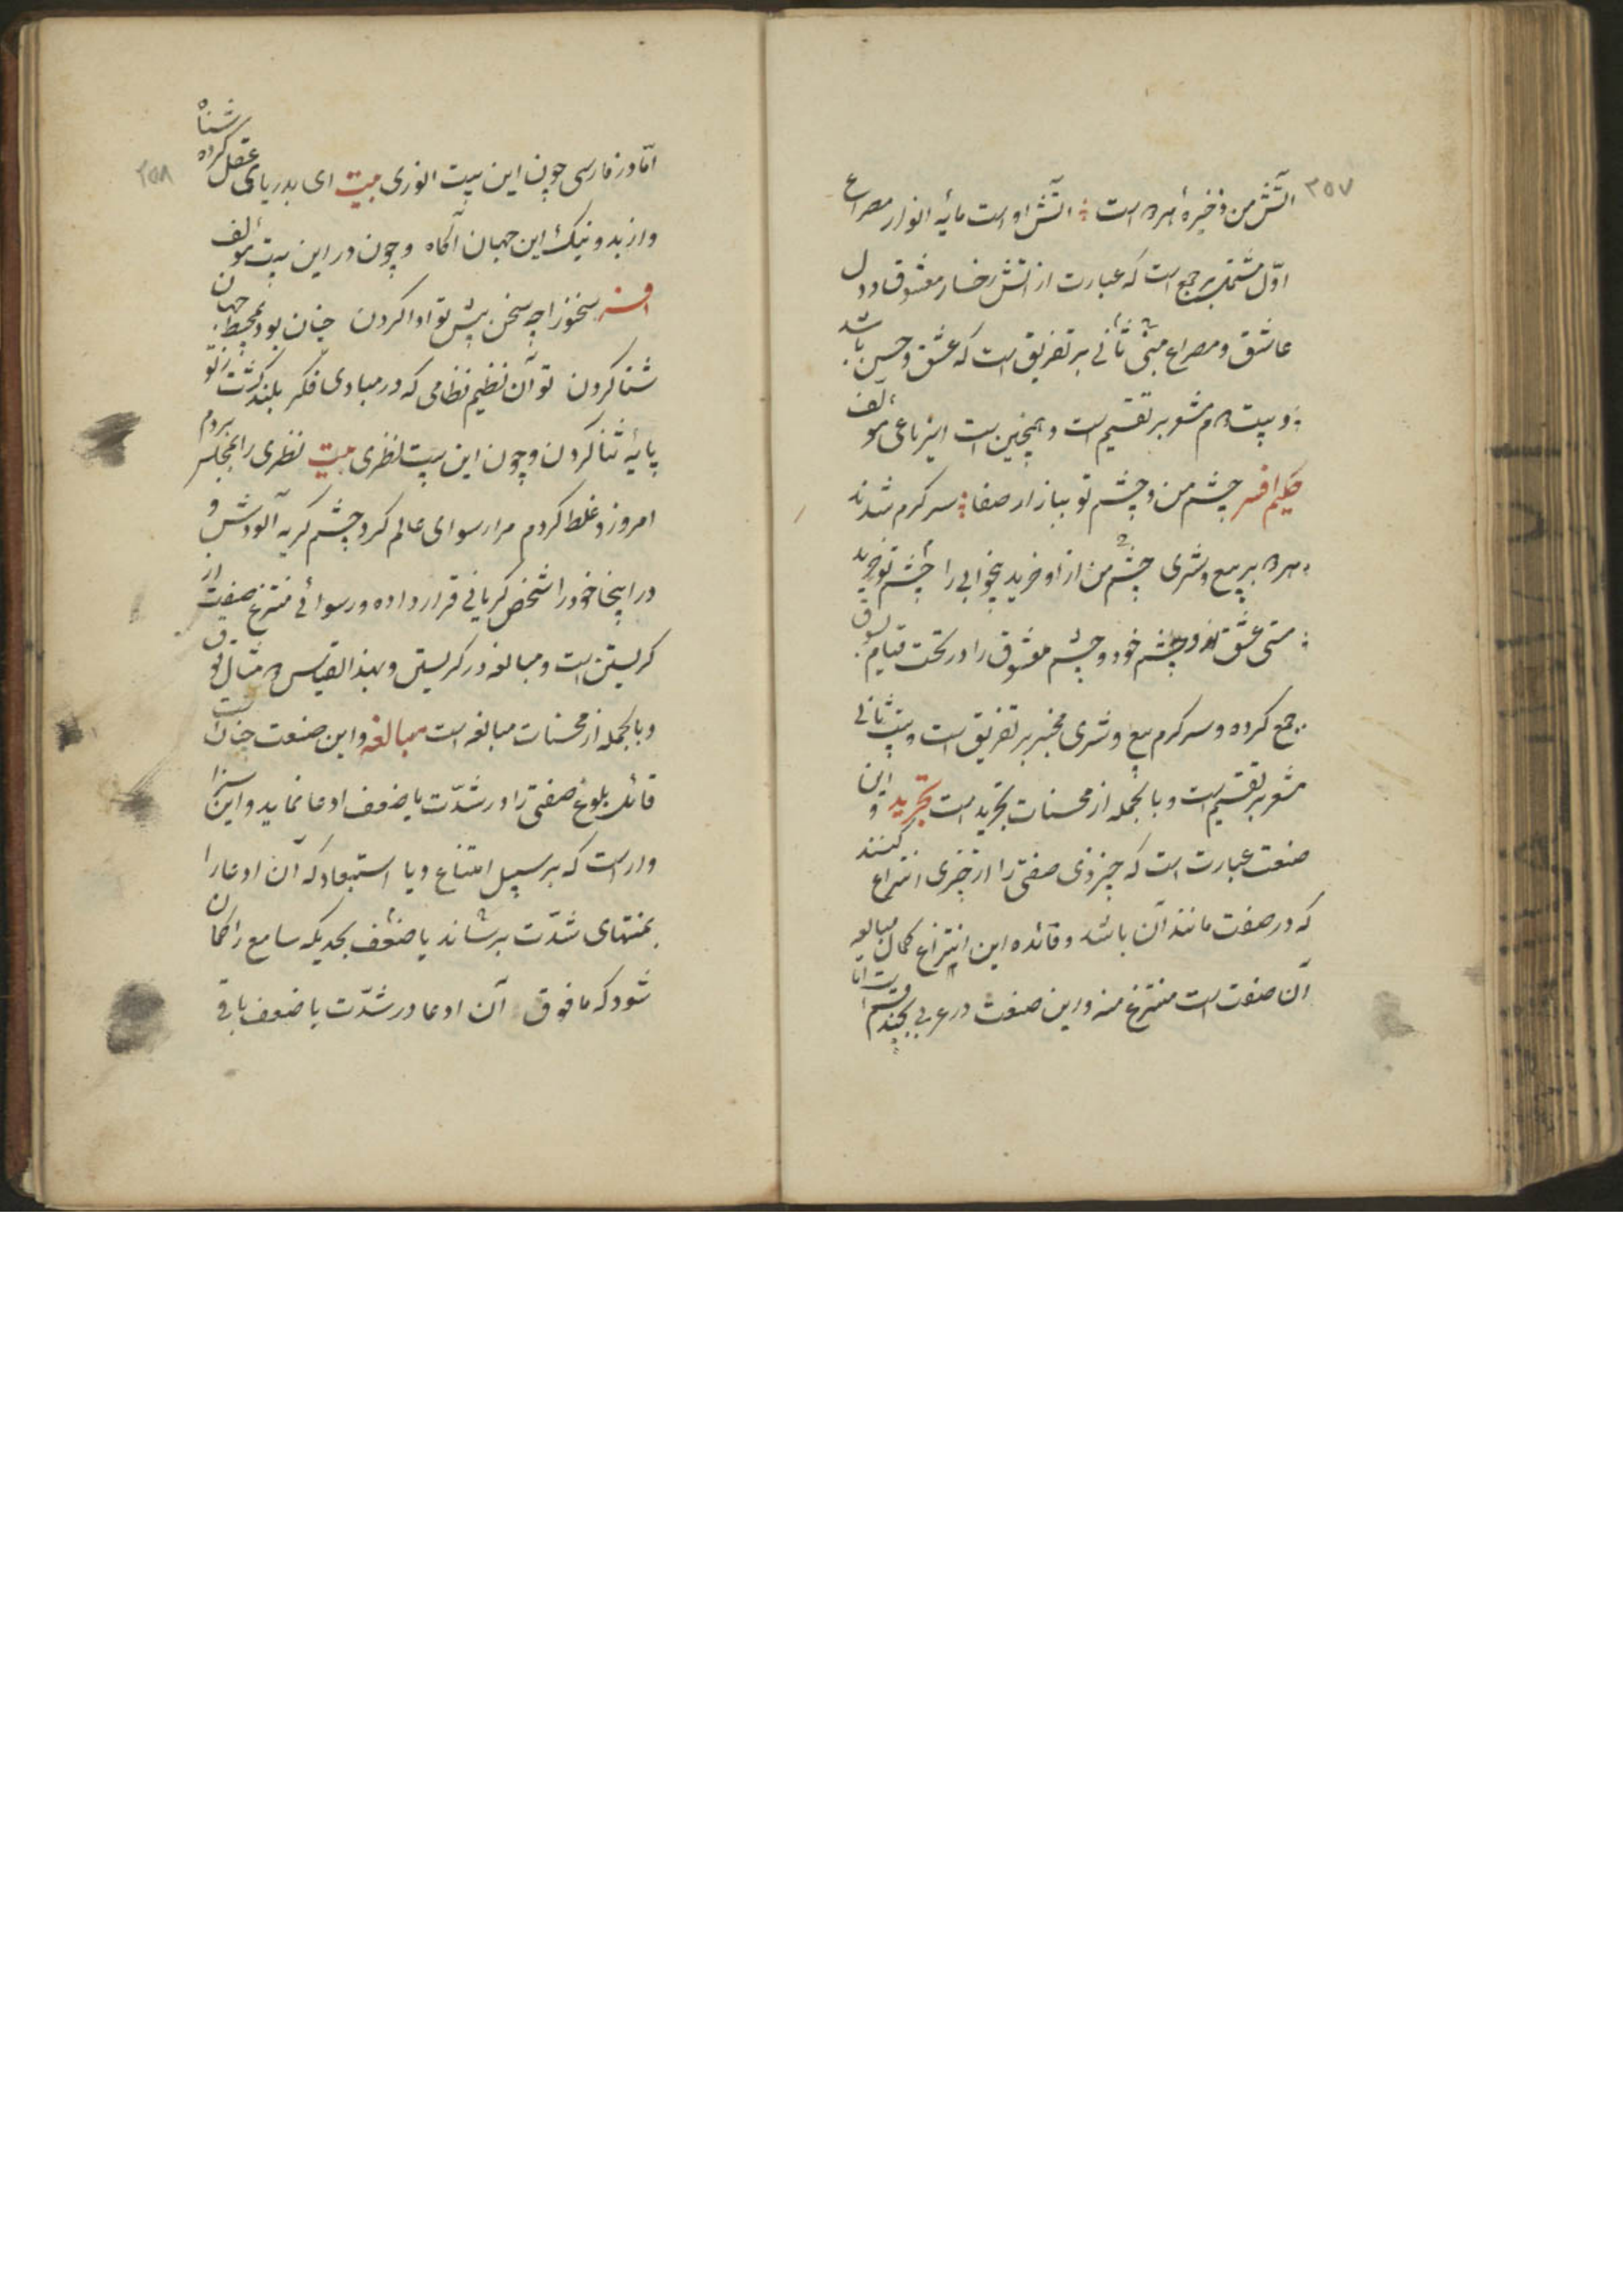 ۳۵۷
آتش من ذخیرهٔ است آتش او است مایه انوار مصراع
اوّل مشتمل بر جمع است که عبارت از آتش رخسار معشوق و دل
عاشق و مصراع ثانی مبنی بر تفریق است که عشق و حسن باشد
و بیت مشعر بر تقسیم است و همچنین است این رباعی مؤلف
حکیم افسر چشم من و چشم تو ببازار صفا سر کرم شدند
بر بیع و شری چشم من از او خرید بیخوابی را چشم تو خرید
مستی عشق و چشم خود و چشم معشوق را در تحت قیام بسوق
جمع کرده و سر کرم بیع و شری مخبر بر تفریق است و بیت ثانی
مشعر بر تقسیم است و بالجمله از محسنات تجرید است تجرید و این
صنعت عبارت است که چیز ذی صفتی را از چیزی انتزاع کنند
که در صفت مانند آن باشد و فائده این انتزاع کمال مبالغه
آن صفت است منتزع منه و این صنعت در عربی بچند قسم است امّا
۳۵۸
امّا در فارسی چون این بیت انوری بیت ای بدریای عقل کرده شناه
واز بد و نیک این جهان آگاه و چون در این بیت مؤلف
افسر سخنور را چه سخن پیش تو ادا کردن چنان بود بمحیط جهان
شنا کردن تو آن نظیم نظامی که در مبادی فکر بلند گشت ز تو
پایه ثنا کردن و چون این بیت نظری بیت نظری را بمجلس بردم
امروز و غلط کردم مرا رسوای عالم کرد چشم گریه آلودش و
در اینجا خود را شخص گریانی قرار داده و رسوائی منتزع از صفت
گریستن است و مبالغه در گریستن و بهذا القیاس مثال فوق
و بالجمله از محسنات مبالغه است مبالغه و این صنعت چنان است
قائل بلوغ صفتی را در شدّت یا ضعف ادعا نماید و این سزا
وار است که بر سبیل امتناع و یا استبعاد که آن ادعا را
بمنتهای شدّت برساند یا ضعف بحدیکه سامع را گمان
شود که ما فوق آن ادعا در شدّت یا ضعف باقی